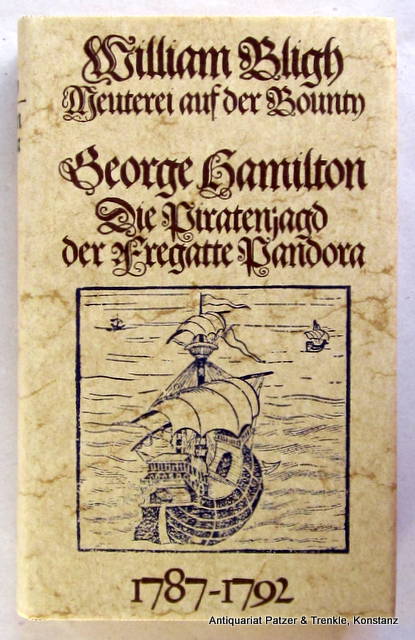 William Bligh
Meuterei auf der Bounty
George Hamilton
Die Piratenjagd
der Fregatte Pandora
1787-1792
Antiquariat Patzer & Trenkle, Konstanz